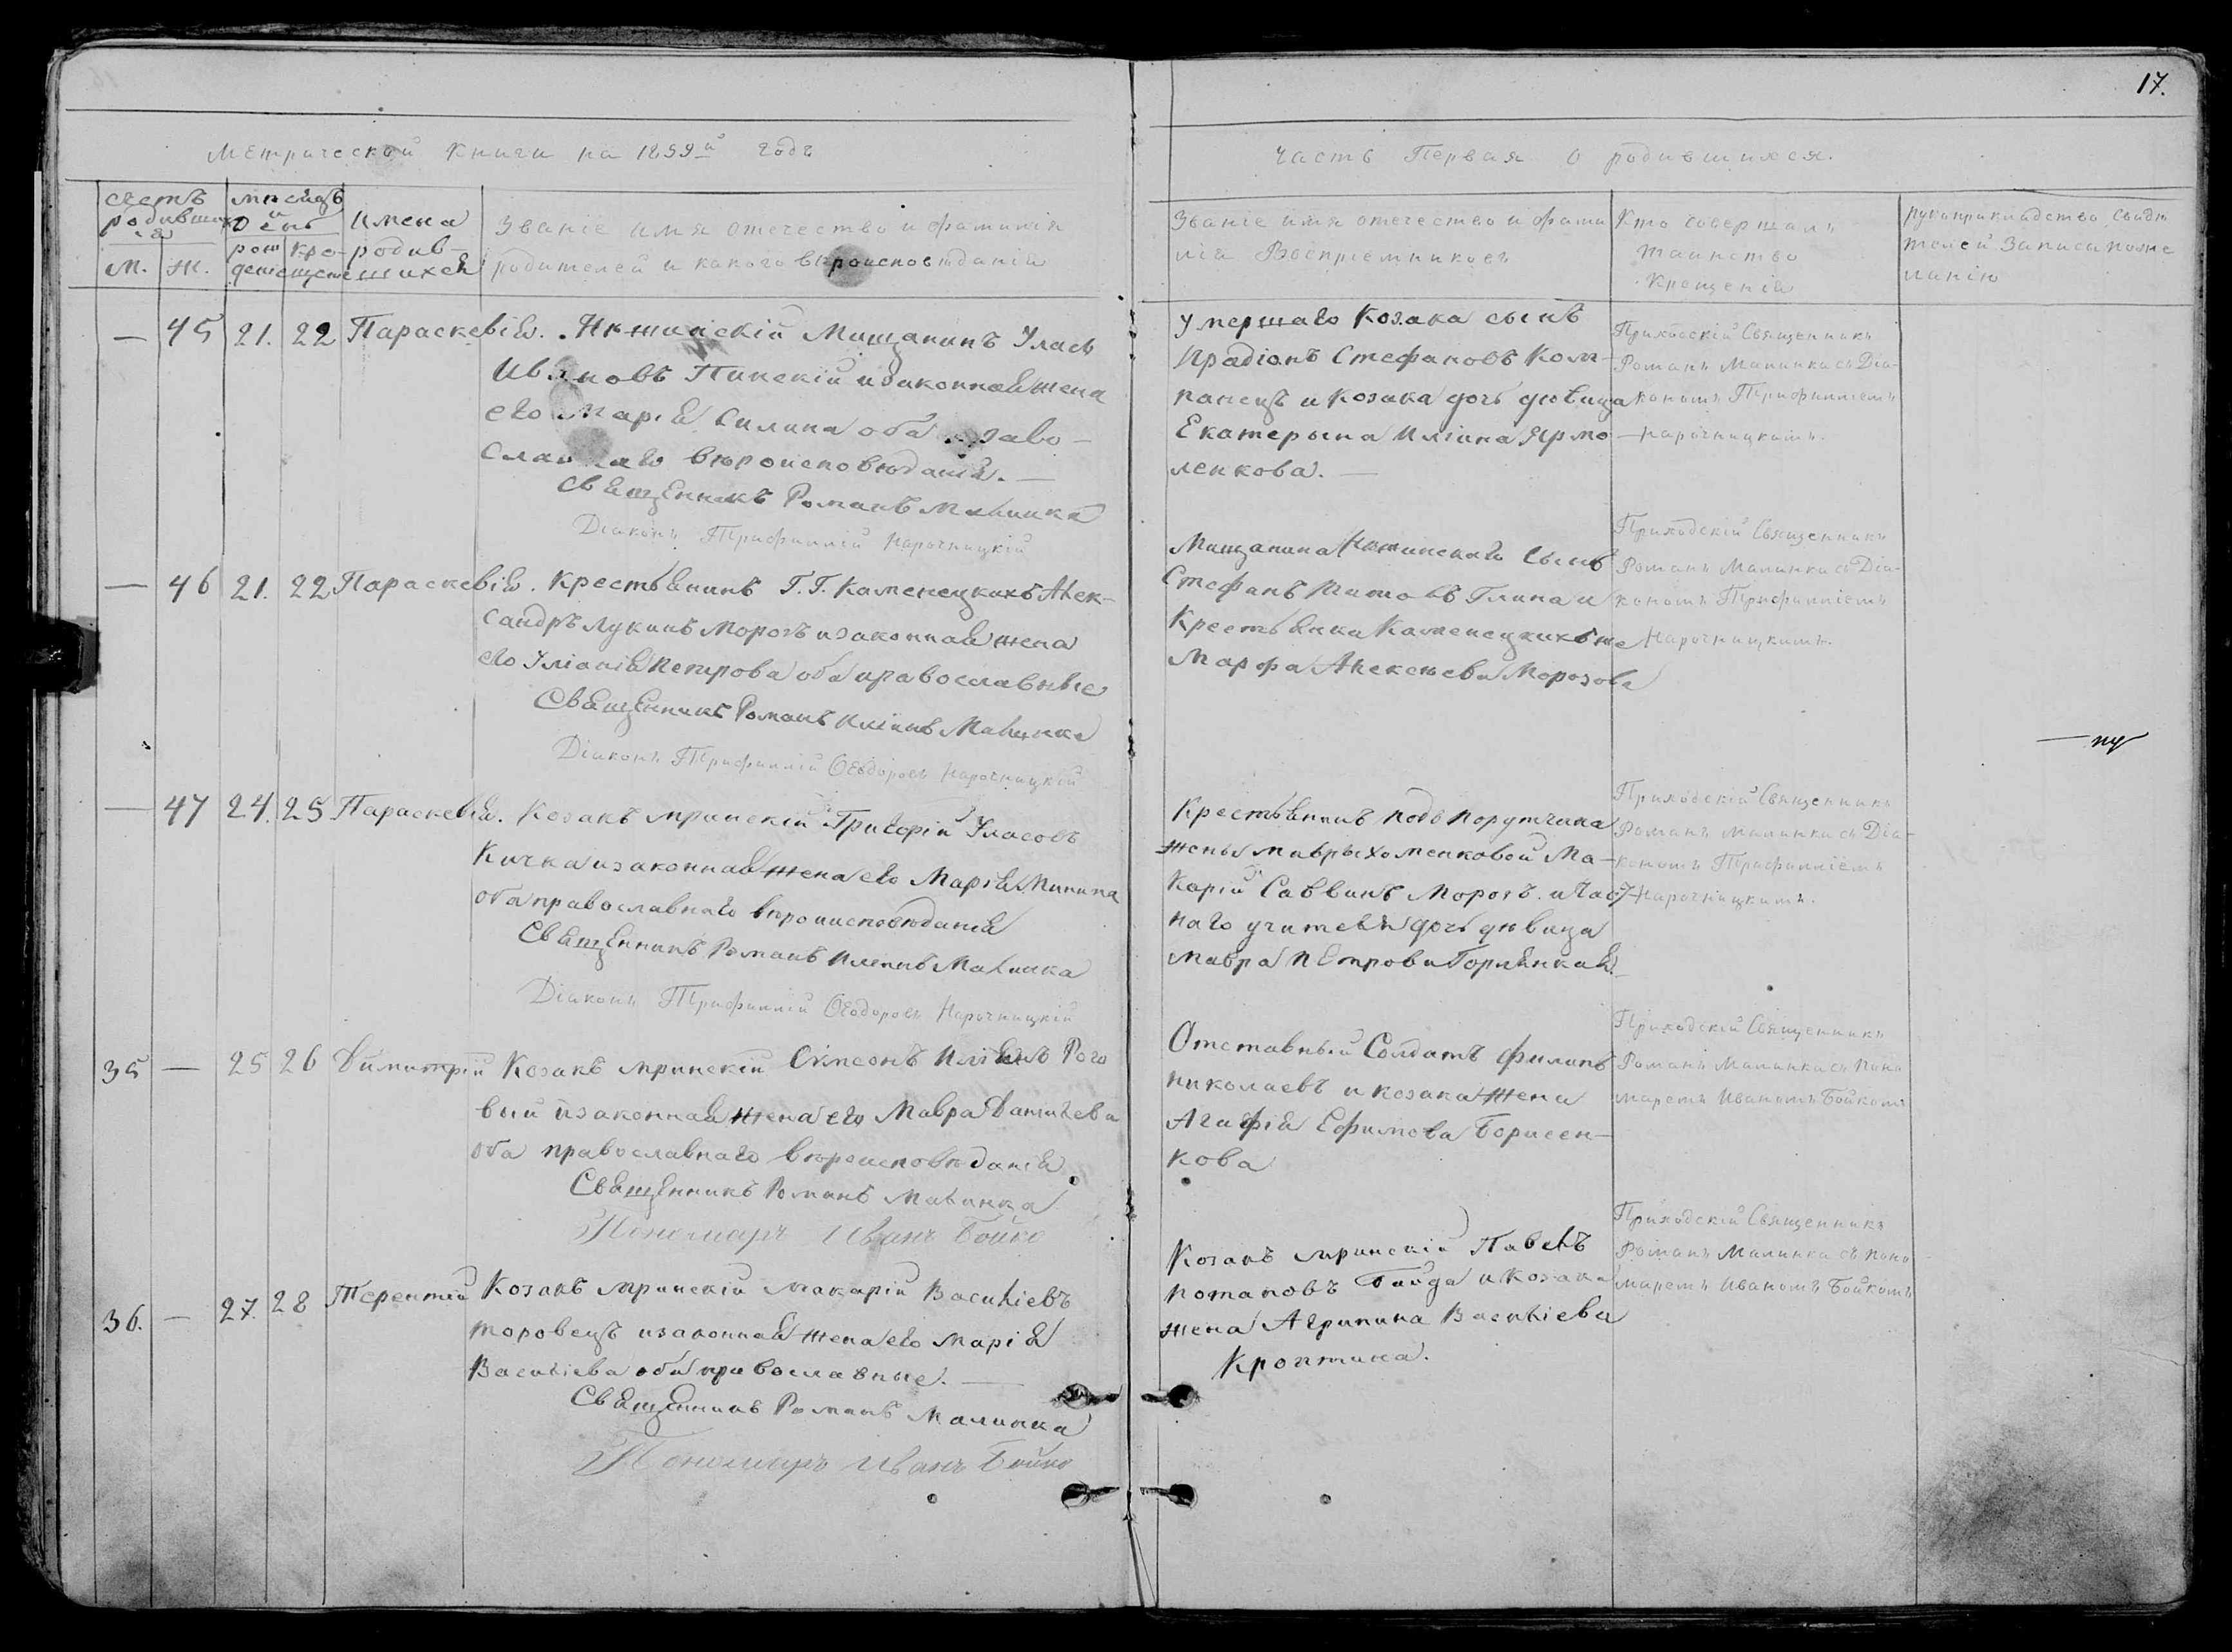 17.
Метрической книги на 1859й годъ
Часть Первая о родившихся.
счетъ родившихся
М. Ж.
мѣсяцъ и день
рожденiе крещенiе
имена родившихся
Званiе имя отечество и фамилiя
родителей и какого вѣроисповѣданiя
Званiе имя отечество и фами
лiя Воспрiемниковъ
Кто совершалъ
таинство
Крещенiя
рукоприкладство свидѣ
телей записи по же
ланiю
— 45 21. 22 Параскевiя.
Мищанинъ Уласъ
Ивановъ Пинскiй и законная жена
его Марiя Силина оба
вѣроисповѣданiя. —
Священникъ Романъ Малинка
Дiаконъ Трифиллiй Нарочницкiй
Умершаго Козака сынъ
Ирадiонъ Стефановъ Ком-
панецъ и Козака дочь дѣвица
Екатерына Илiина Ярмо
ленкова. —
Приходскiй Священникъ
Романъ Малинка съ Дiа-
кономъ Трифиллiемъ
Нарочницкимъ.
— 46 21. 22 Параскевiя. Крестьянинъ Г.Г. Каменецкихъ Алек-
сандръ Лукинъ Морозъ и законная жена
его Улiанiя Петрова оба православные
Священникъ Романъ Илiинъ Малинка
Дiаконъ Трифиллiй Ѳеодоровъ Нарочницкiй
Мищанина сынъ
Стефанъ Титовъ Глина и
Крестьянка Каменецкихъ же
Марфа Алексѣева Морозова
Приходскiй Священникъ
Романъ Малинка съ Дiа-
кономъ Трифиллiемъ
Нарочницкимъ.
— 47 24. 25 Параскевiя. Козакъ мринскiй Григорiй Уласовъ
Кичка и законная жена его Марiя Минина
оба православнаго вѣроисповѣданiя
Священникъ Романъ Илiинъ Малинка
Дiаконъ Трифиллiй Ѳеодоровъ Нарочницкiй
Крестьянинъ подъ порутчика
жены Мавры Хоменковой Ма-
карiй Саввинъ Морозъ. и
наго учителя дочь дѣвица
Мавра Петрова
Приходскiй Священникъ
Романъ Малинка съ Дiа-
кономъ Трифиллiемъ
Нарочницкимъ.
35 — 25 26 Димитрiй Козакъ мринскiй Сѵмеонъ Рого
вый и законная жена его Мавра Данiилева
оба православнаго вѣроисповѣданiя
Священникъ Романъ Малинка
Пономарь Иванъ Бойко
Отставный Солдатъ Филипъ
Николаевъ и козака жена
Агафiя Ефимова Борисен-
кова
Приходскiй Священникъ
Романъ Малинка съ поно
маремъ Иваномъ Бойкомъ
36. — 27. 28 Терентiй Козакъ мринскiй Макарiй Василiевъ
Торовецъ и законная жена его Марiя
Василiева оба православные. —
Священникъ Романъ Малинка
Пономарь Иванъ Бойко
Козакъ мринскiй Павелъ
Потаповъ и Козака
жена Агрипина Василiева
Приходскiй Священникъ
Романъ Малинка съ поно
маремъ Иваномъ Бойкомъ